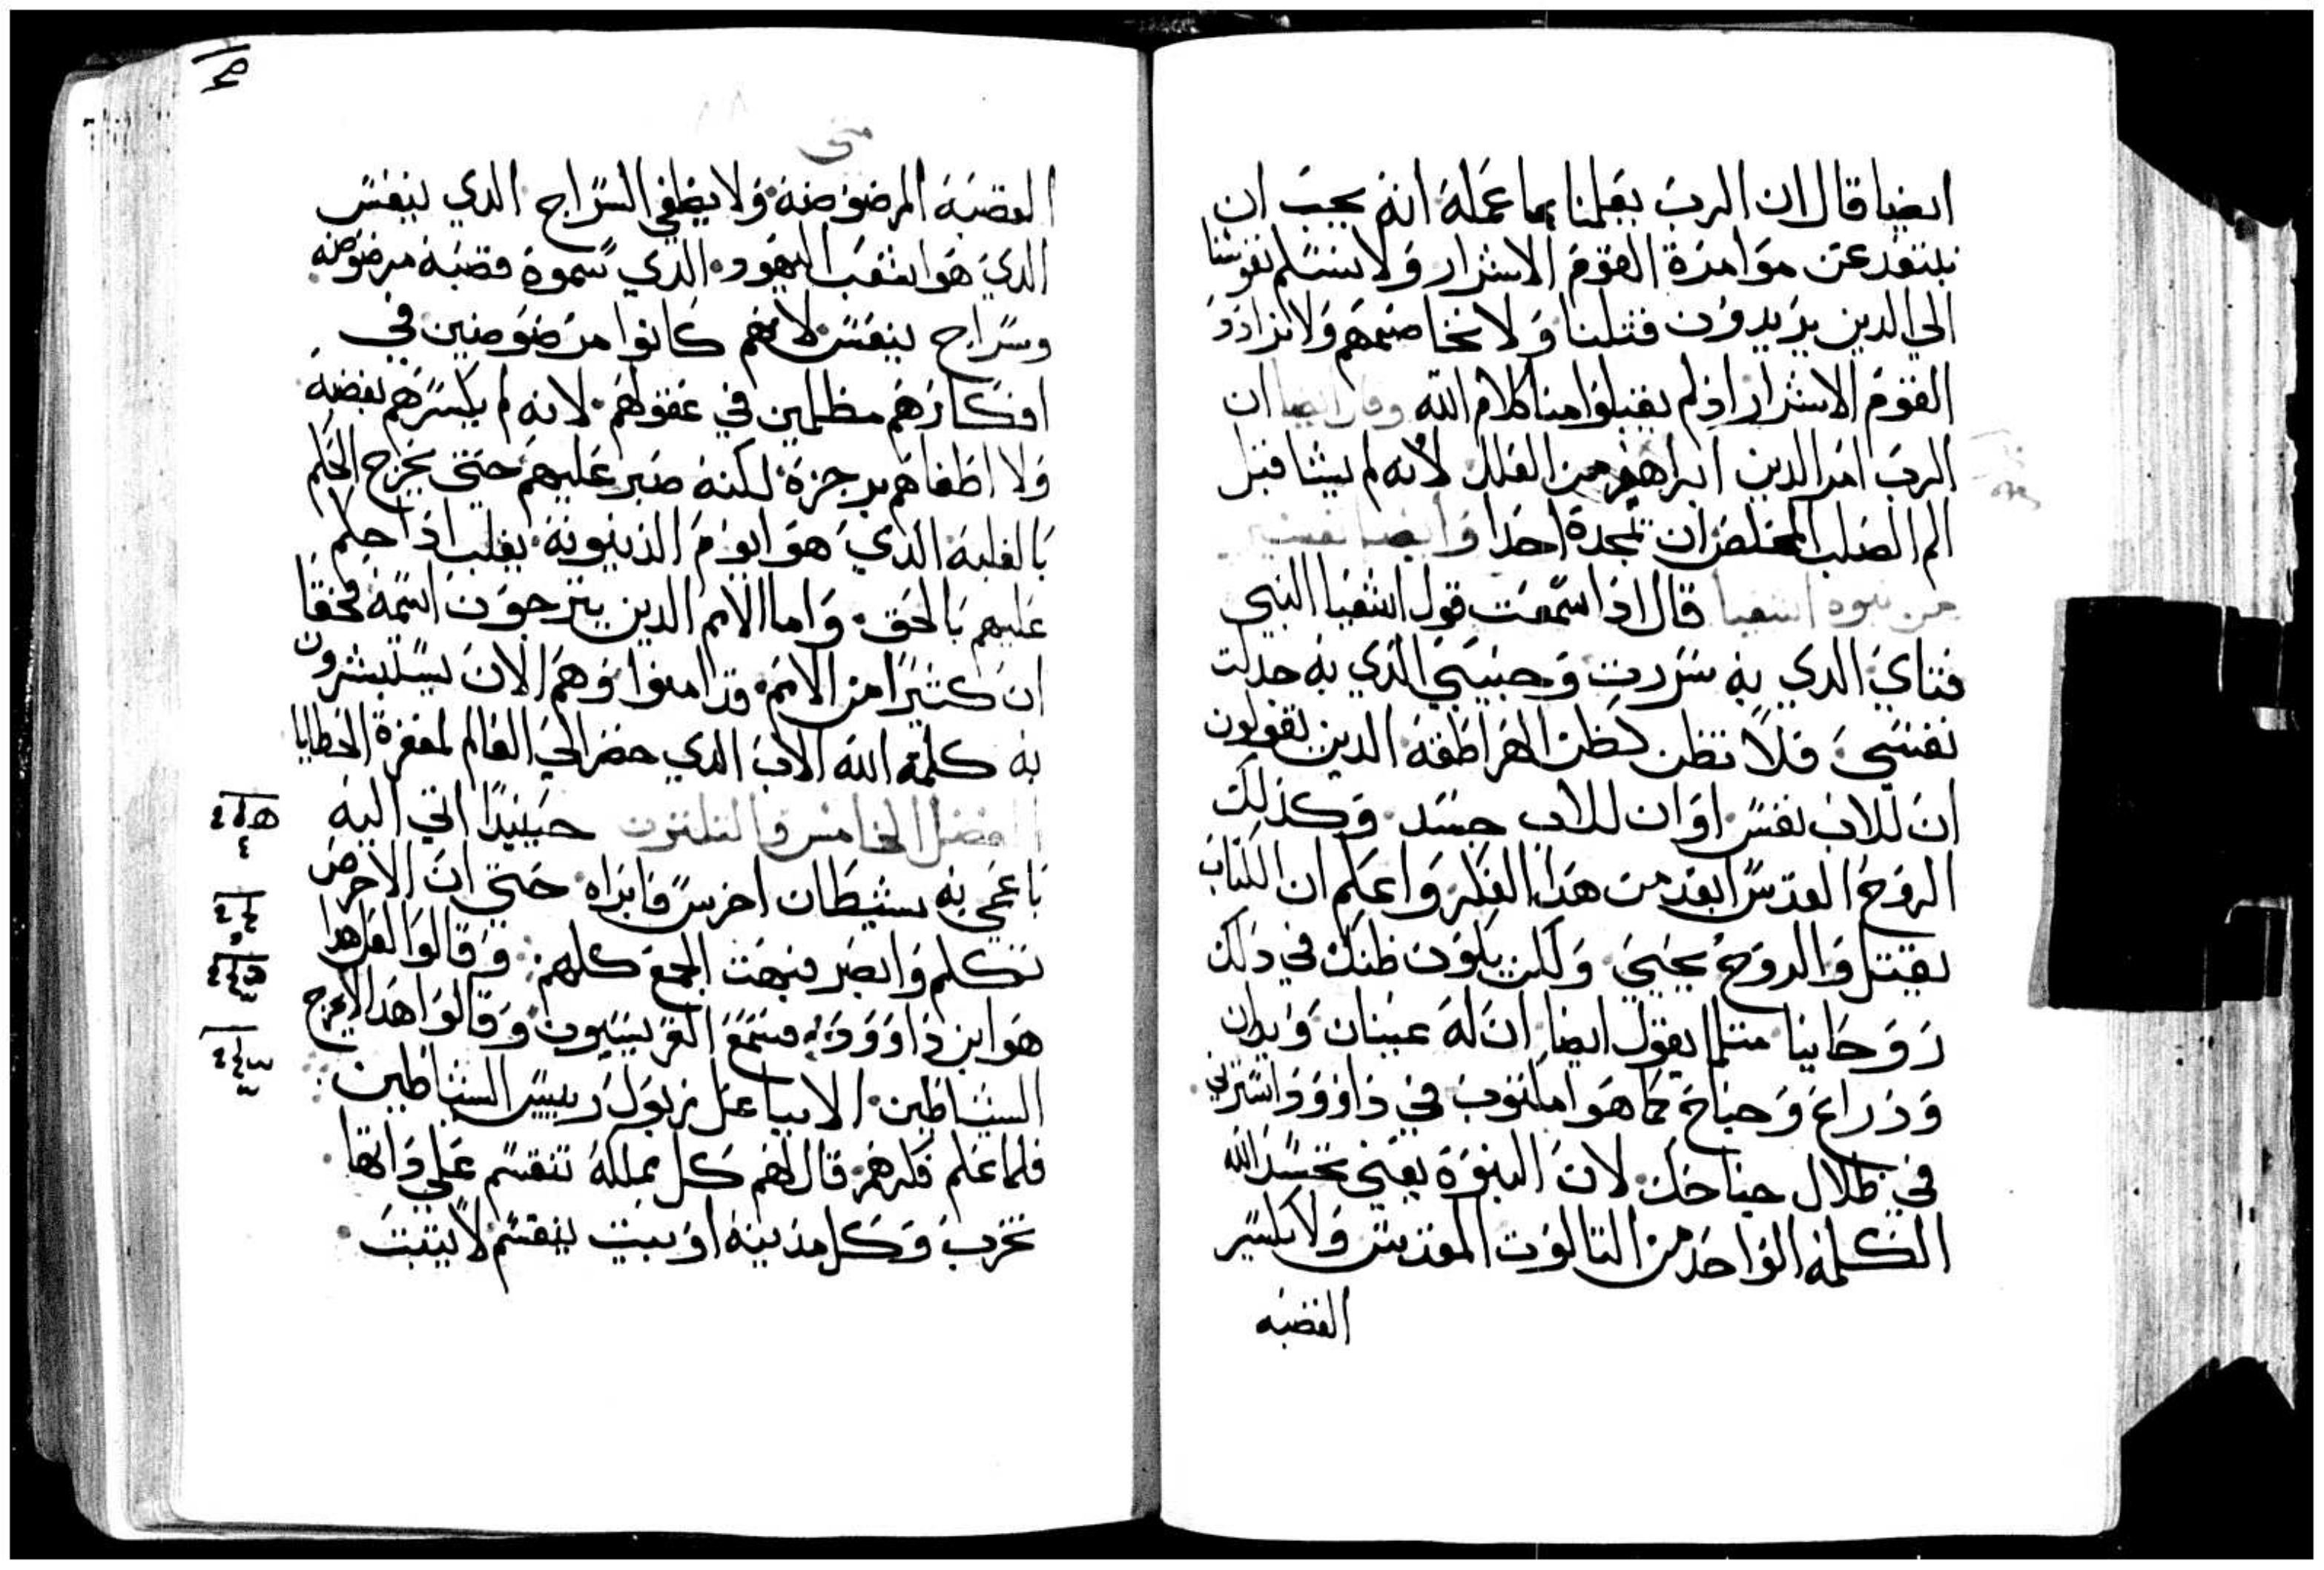 ايضا قال ان الرب يعلمنا بما عمله انه يجب ان
نبتعد عن موامرة القوم الاشرار ولا نسلم نفوسنا
الي الدين يريدون قتلنا ولا نخاصمهم ولا نرادد
القوم الاشرار اذ لم يقبلوا منا كلام الله وقال ايضا ان
الرب امر الدين ابراهم من العلل لانه لم يشا قبل
الم الصلب المخلص ان تمجده احدا وايضا تفسير
من نبوة اشعيا قال اذا سمعت قول اشعيا النبي
فتاي الدي به سررت وحبيبي الدي به جدلت
نفسي فلا تظن كظن الهراطقه الدين يقولون
ان للاب نفس او ان للاب جسد وكذلك
الروح القدس ابعد من هدا الفكر واعلم ان الكتاب
يقتل والروح يحيي ولكن يكون ظنك في ذلك
روحانيا متلما يقول ايضا ان له عينان ويدان
وذراع وجناح كما هوا مكتوب في داوود استرني
في ظلال جناحك لان النبوة يعني تجسد الله
الكلمه الواحد من التالوت المقدس ولا يكسر
القصبه
متي
القصبه المرضوضه ولا يطفي السراج الدي ينفس
الدي هو اشعب اليهود الدي سموه قصبه مرضوضه
وسراج ينفس لانهم كانوا مرضوضين في
افكارهم مظلمين في عقولهم لانه لم يكسرهم بغضبه
ولا اطفاهم برجزه لكنه صبر عليهم حتي يخرج الحكم
بالغلبه الدي هو ايوم الذينونه يغلب اذا حكم
عليهم بالحق واما الامم الدين يترجون اسمه فحقا
ان كثيرا من الامم قد امنوا وهم الان يستبشرون
به كلمة الله الاب الدي حضر الي العالم لمغفرة الخطايا
الفصل الخامس والتلتون حينيدا اتي اليه
باعمي به شيطان اخرس فابراه حتي ان الاخرس
تكلم وابصر فبهت الجمع كلهم وقالوا لعل هدا
هو ابن داوود فسمع الفريسيون وقالوا هدا لا يخرج
الشياطين الا بباعل زبول رييس الشياطين
فلما علم فكرهم قال لهم كل مملكه تنقسم علي داتها
تخرب وكل مدينه او بيت ينقسم لا يتبت